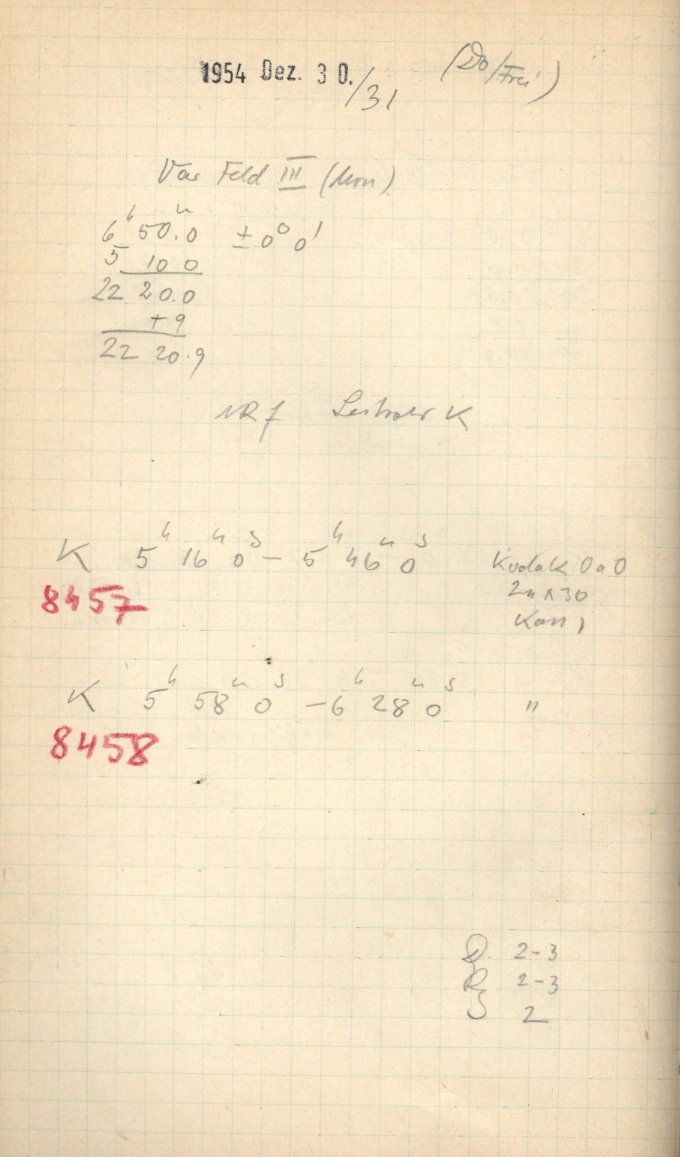 1954 Dez. 30./31 (Do/Frei)
Var Feld III (Mon)
6ʰ 50.ᵐ0 ±0° 0'
5 10 0
22 20.0
+9
22 20.9
K
K 5ʰ 16ᵐ 0ˢ – 5ʰ 46ᵐ 0ˢ Kodak 0a0
8457 30
K 5ʰ 58ᵐ 0ˢ – 6ʰ 28ᵐ 0ˢ "
8458
D. 2-3
R 2-3
S 2